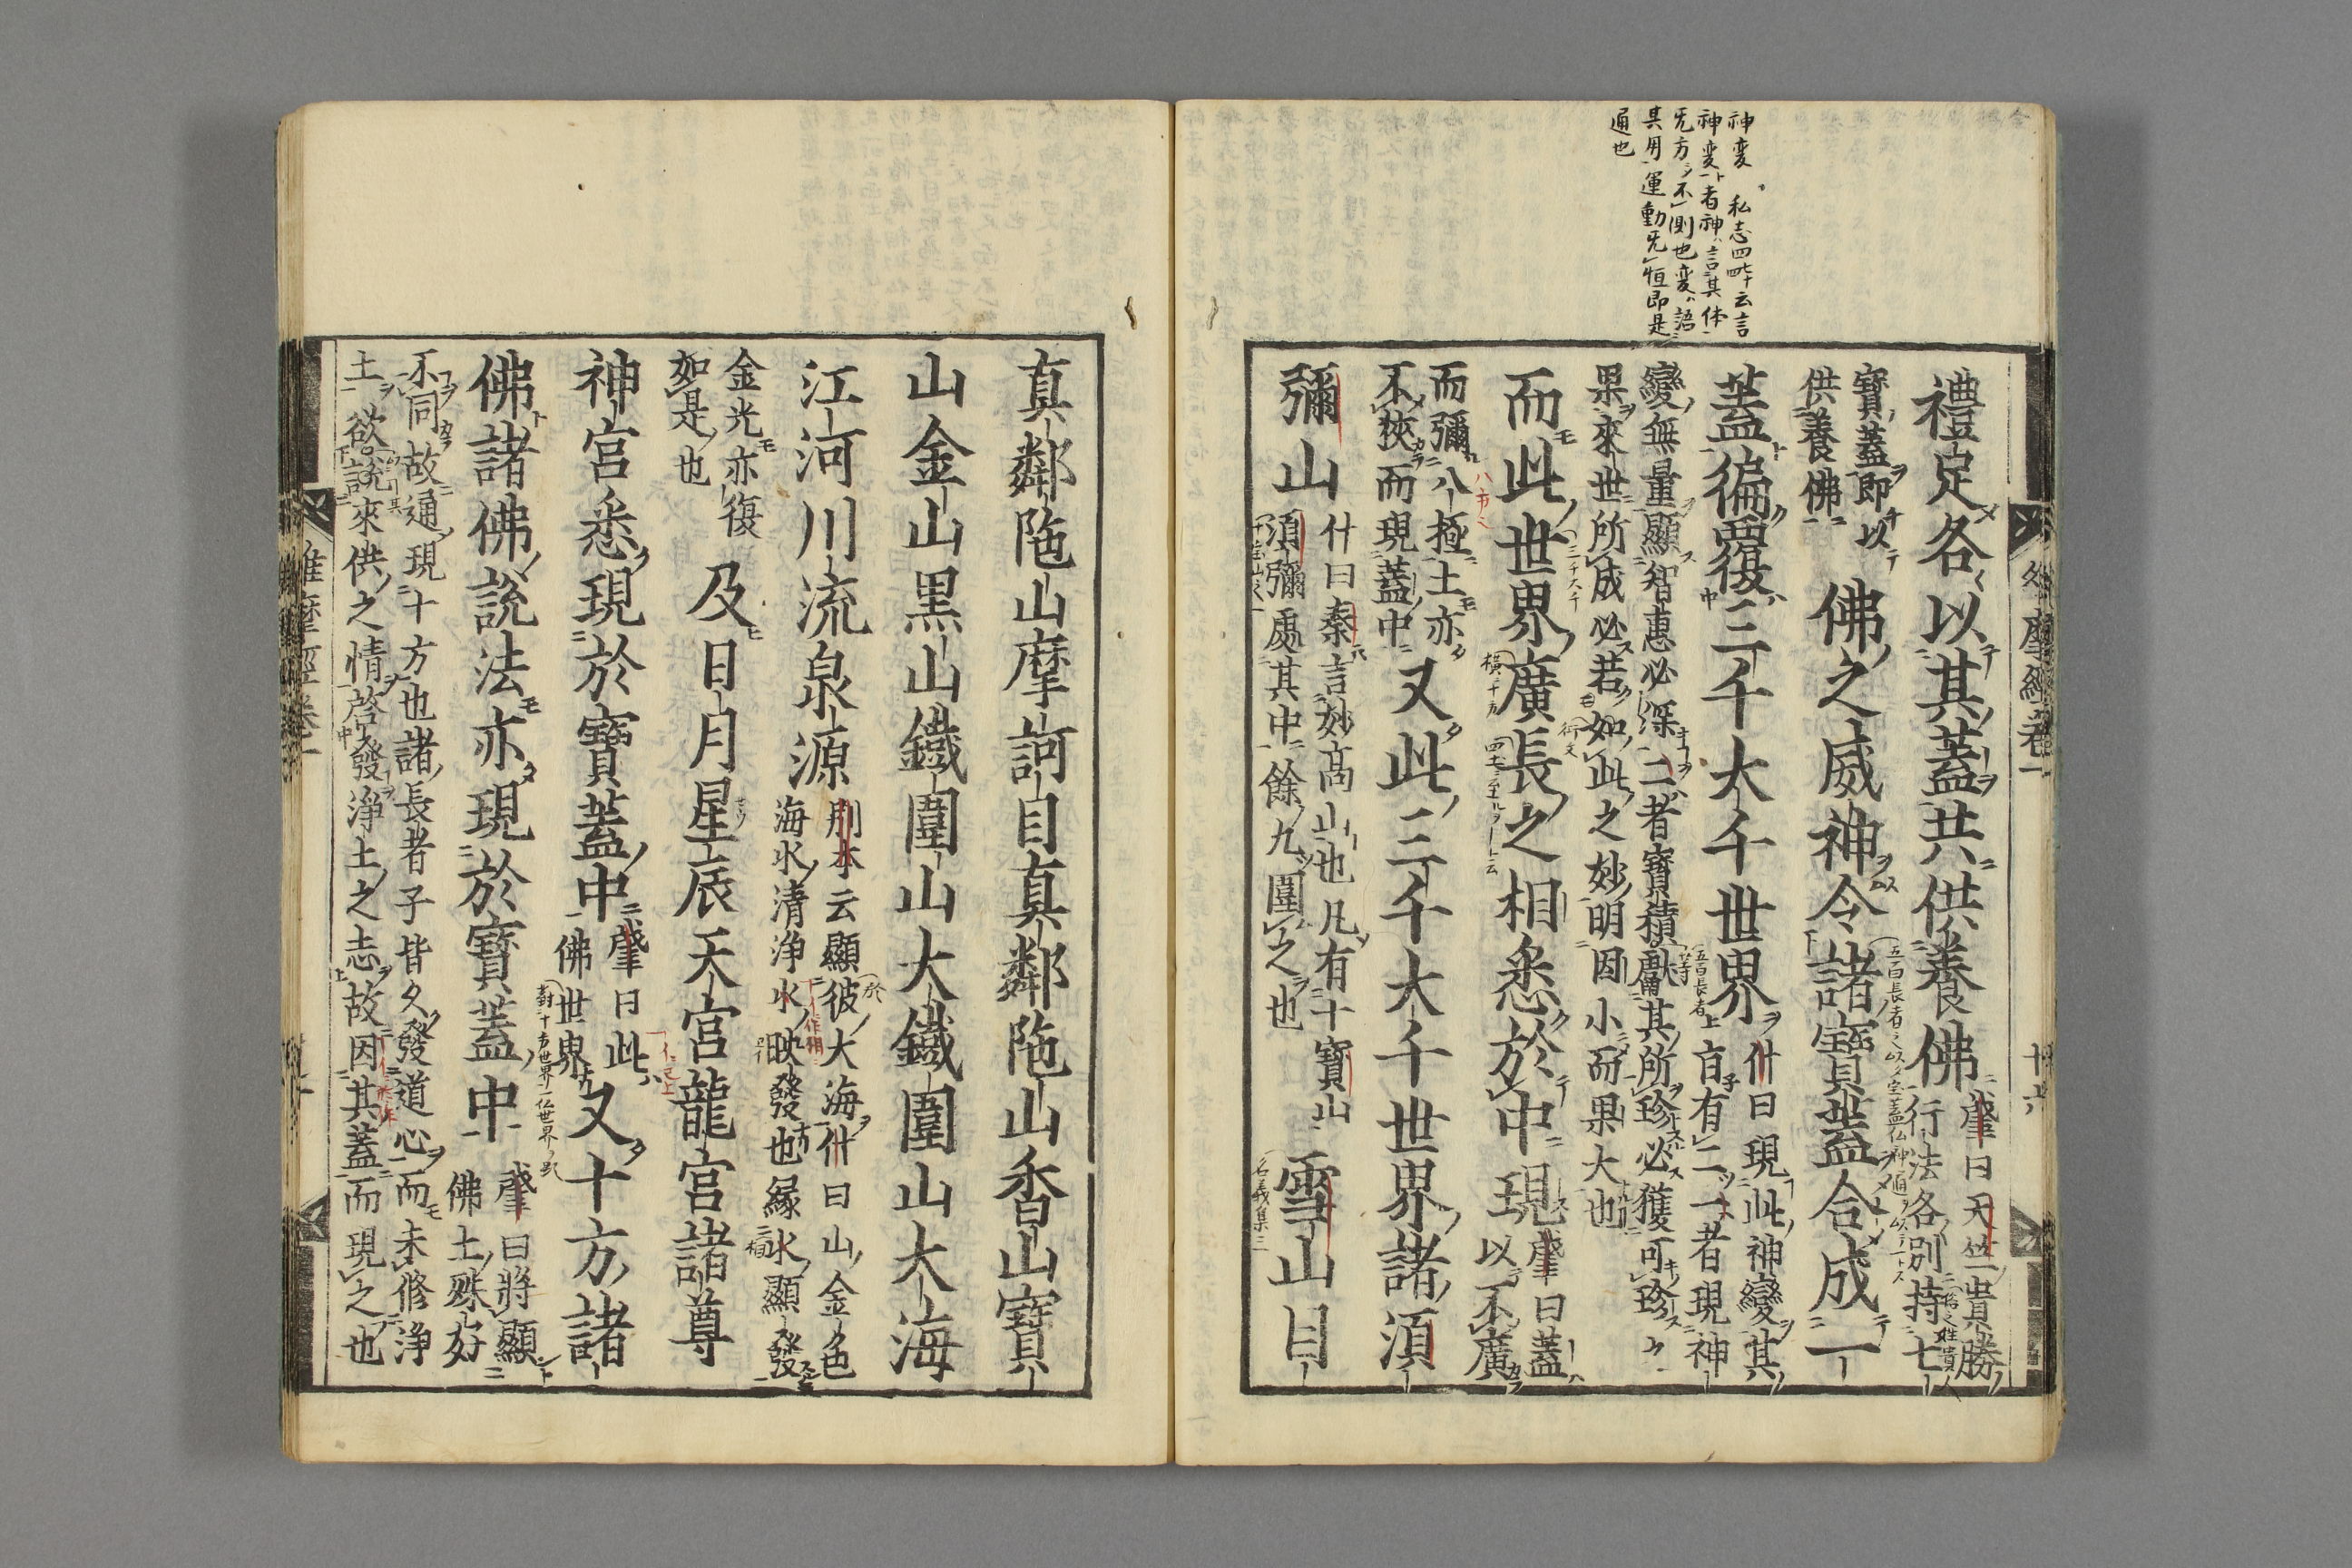 神変 私志四 云言
神変者神言其体
无方不測也変語
其用運動无恒即是
通也
維摩經卷一
十六
禮足各以其蓋共供養佛
肇曰天竺貴勝
行法各別持七
寶蓋即以
供養佛
佛之威神令諸寶蓋合成一
蓋徧覆三千大千世界
什曰現此神變其
旨有二一者現神
變無量顯智惠必深二者寶積獻其所珍必獲可珍之
果來世所成必若如此之妙明因小而果大也
而此世界廣長之相悉於中現
肇曰蓋
以不廣
而彌八極土亦
不狹而現蓋中
又此三千大千世界諸須
彌山
什曰秦言妙高山也凡有十寶山
須彌處其中餘九圍之也
雪山目
真鄰陁山摩訶目真鄰陁山香山寶
山金山黒山鐵圍山大鐵圍山大海
江河川流泉源
別本云顯彼大海什曰山金色
海水清淨水映發也縁水顯發
金光亦復
如是也
及日月星辰天宮龍宮諸尊
神宮悉現於寶蓋中
肇曰此
佛世界
又十方諸
佛諸佛說法亦現於寶蓋中
肇曰將顯
佛土殊好
不同故通現十方也諸長者子皆久發道心而未修淨
土欲說來供之情啓發淨土之志故因其蓋而現之也
維摩經卷一